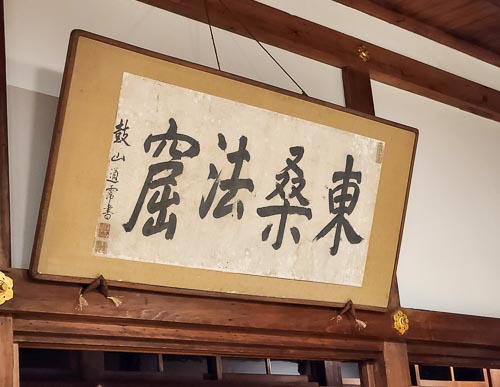 東桑法窟
鼓山道霈書